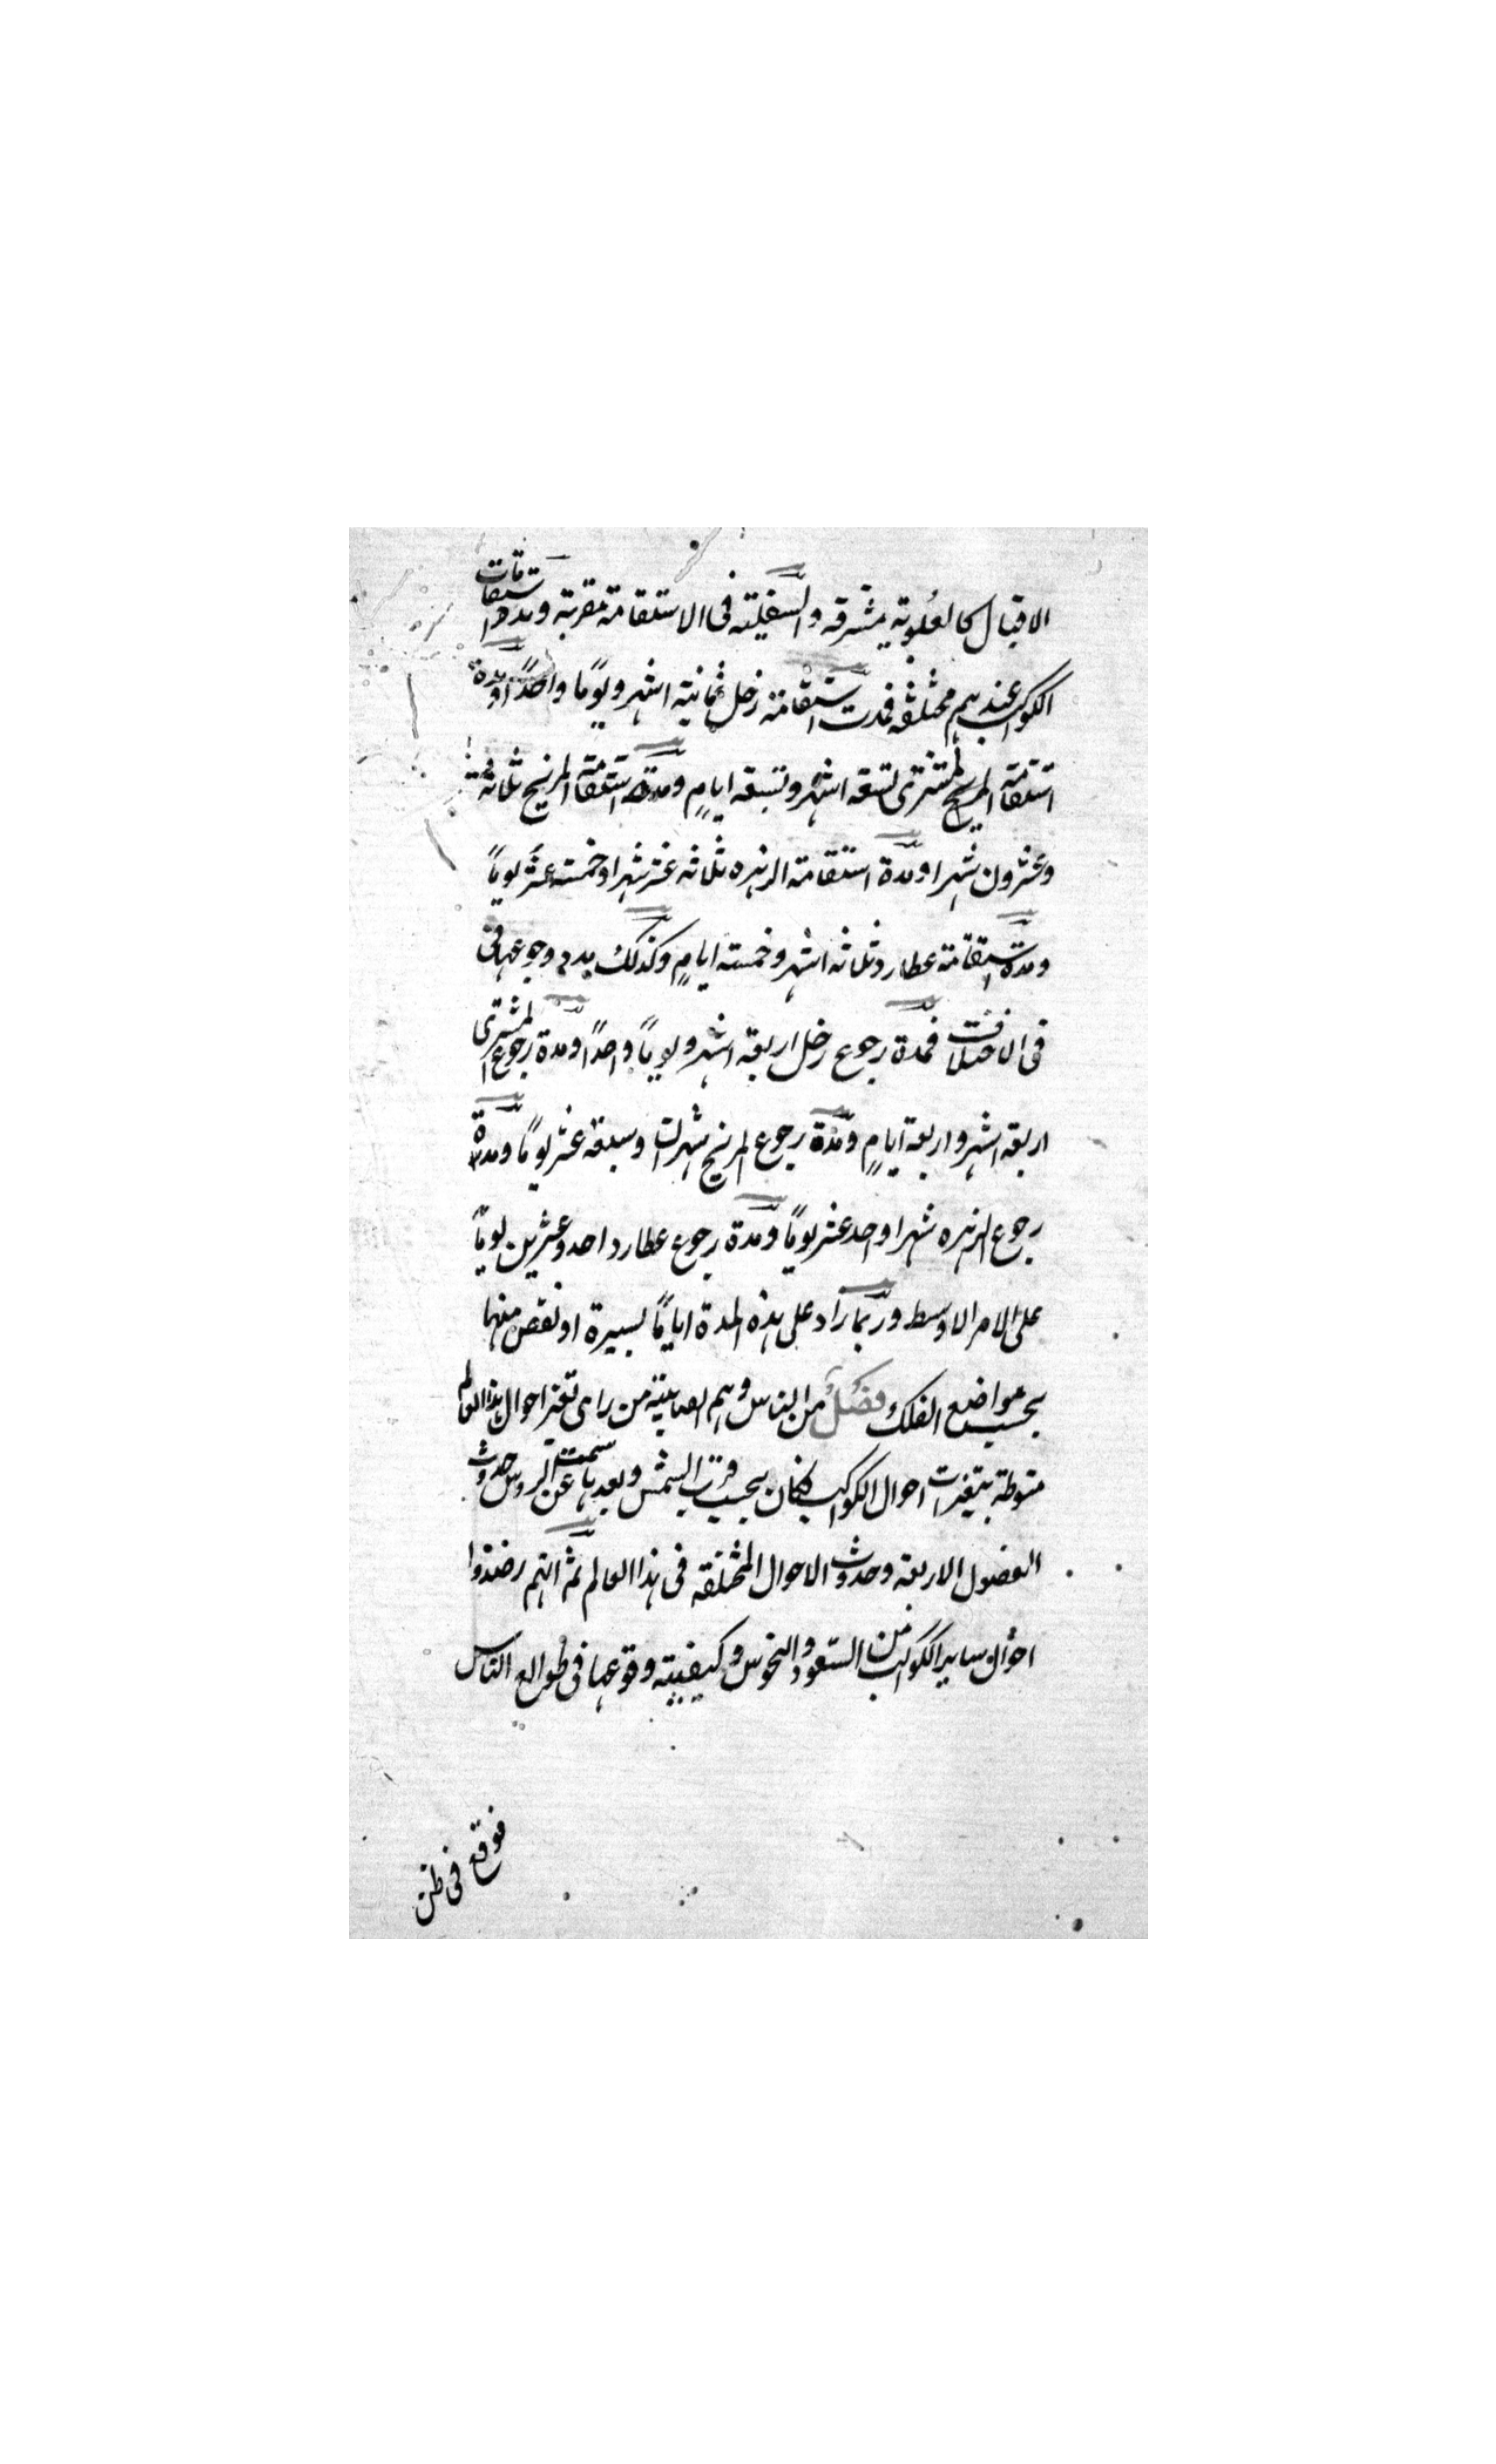 الاقبال كالعلوية مشرقه والسفلية فى الاستقامة مغربة ومدد استقامات
الكواكب عندهم مختلفة فمدت استقامة زحل ثمانية اشهر ويومًا واحدًا ومدة
استقامة المشترى تسعة اشهر وتسعة ايامٍ ومدة استقامة المريخ ثلاثة
وعشرون شهرا ومدة استقامة الزهره ثلاثه عشر شهرا وخمسته عشر يومًا
ومدة استقامة عطارد ثلاثه اشهر وخمسته ايامٍ وكذلك مدد رجوعها فى
فى الاختلافت فمدة رجوع زحل اربعة اشهر ويومًا واحدًا ومدة رجوع المشترى
اربعة اشهر واربعة ايامٍ ومدة رجوع المريخ شهرات وسبعة عشر يومًا ومدة
رجوع الزهره شهرا واحد عشر يومًا ومدة رجوع عطارد احد وعشرين يومًا
على الامر الاوسط وربما زاد على هذه المدة ايامًا يسيرة او نقص منها
بحسب مواضع الفلك فصل من الناس وهم الصابية من راى تغير احوال هذا العالم
منوطة بتغيرات احوال الكواكب فكان بحسب قرب الشمس وبعدها عن سمت الروس حدوث
الفصول الاربعة وحدوث الاحوال المختلفه فى هذا العالم ثم انهم رصدوا
احوال ساير الكواكب من السعود والنحوس وكيفيته وقوعها فى طوالع الناس
فوقع فى ظن